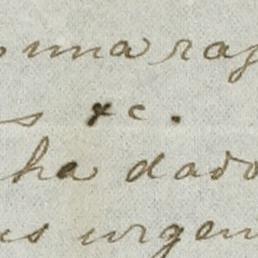 una raz
s &c.
ha dado
us urgen